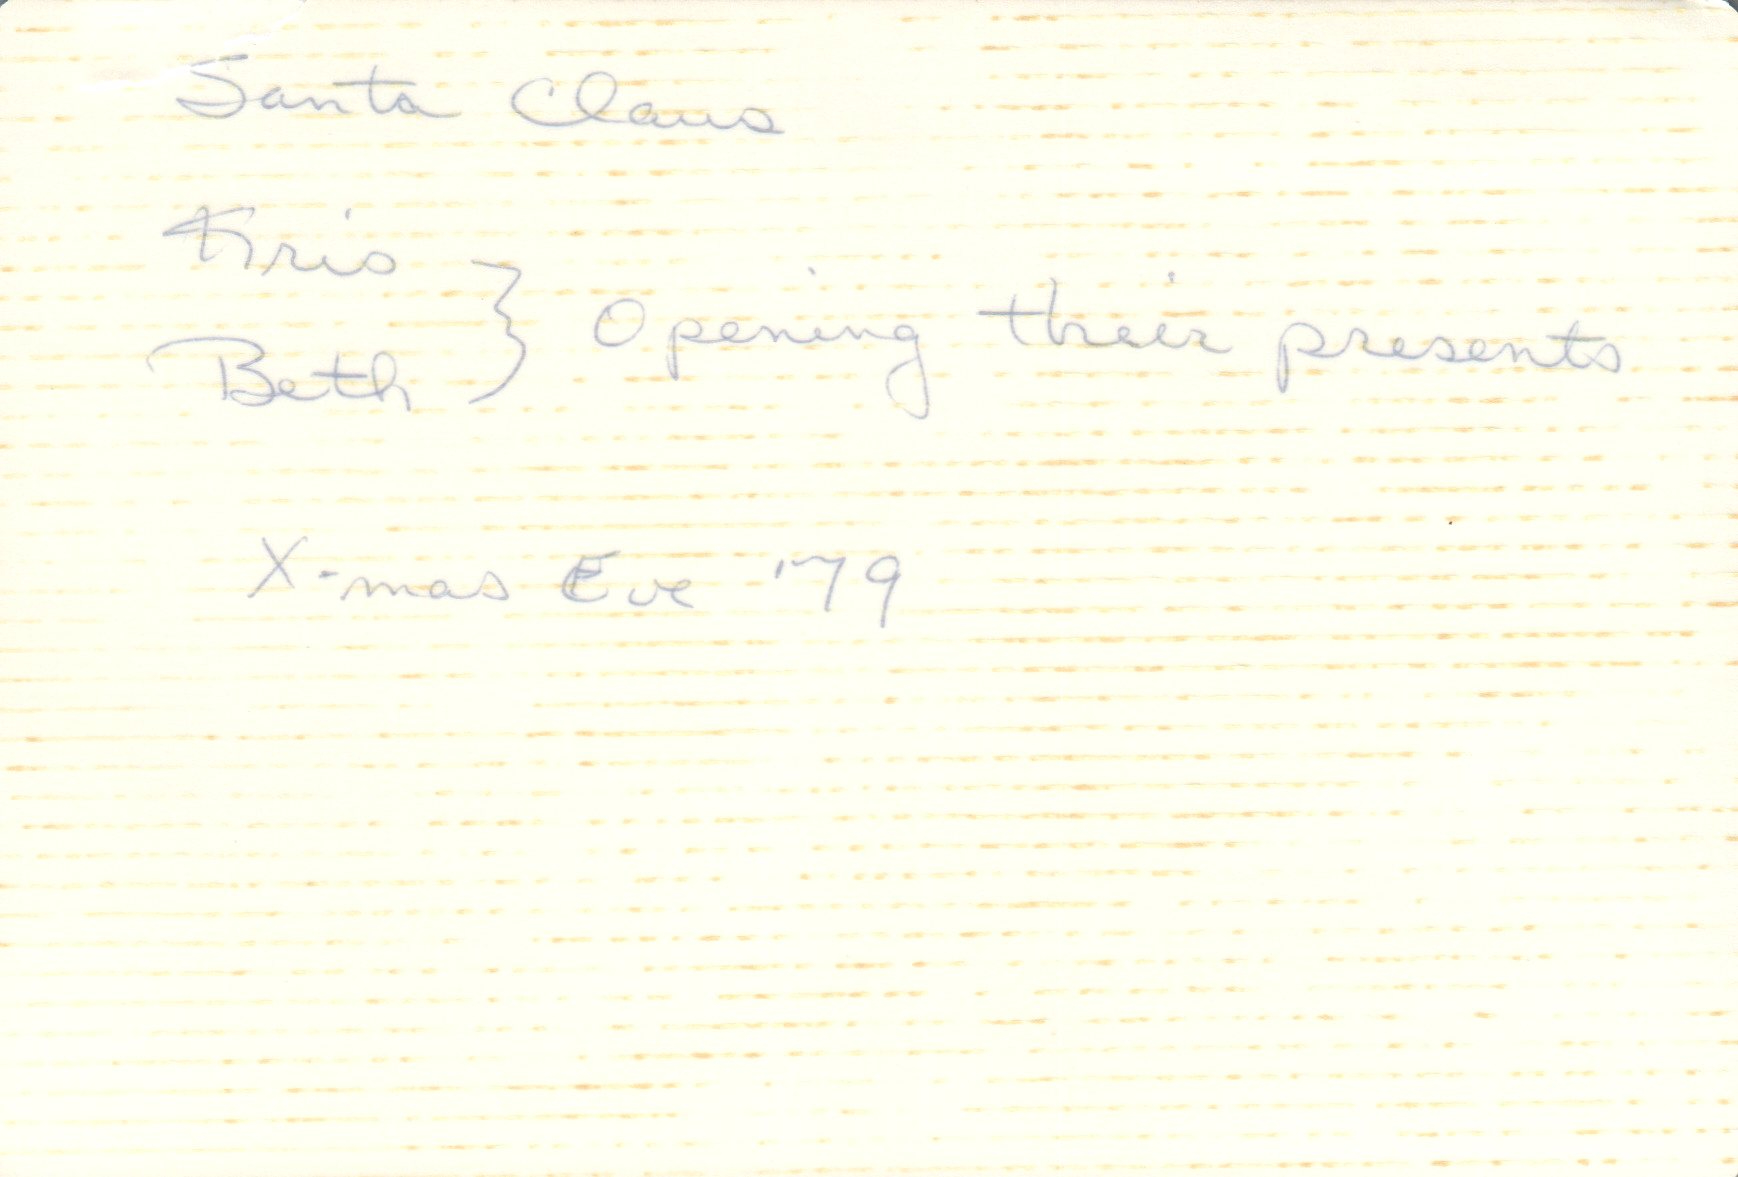 Santa Claus
Kris
Beth } Opening their presents
X-mas Eve '79